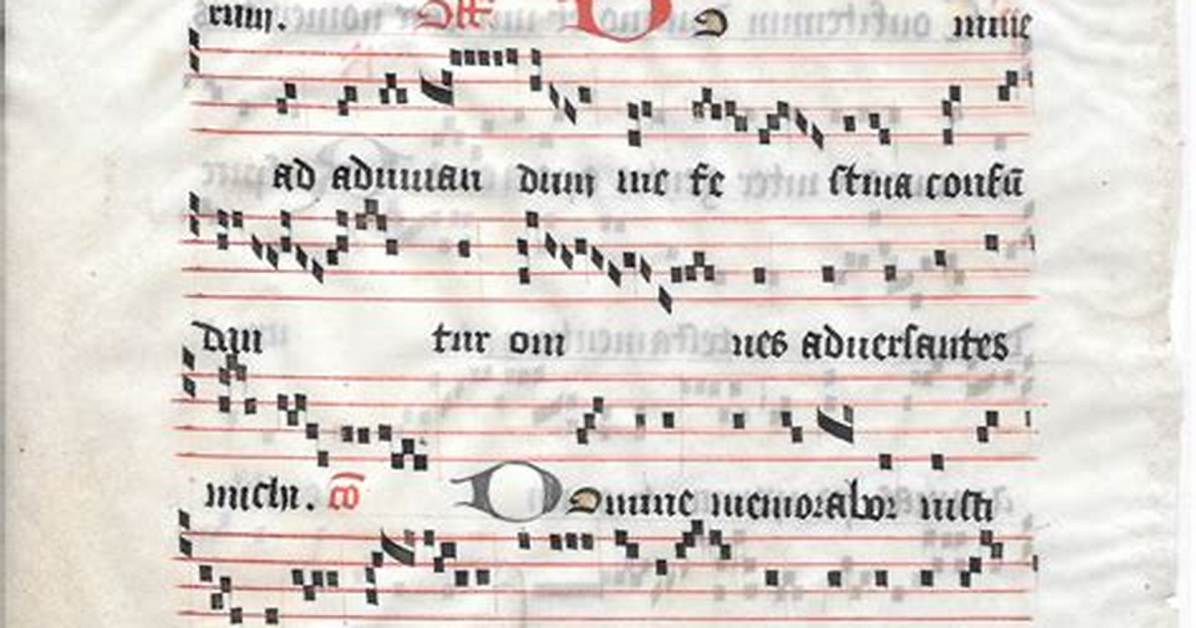 rum. Off. D D mine
ad adiuuan dum me fe stina confū
dan tur om nes aduersantes
michi. cō DOmine memorabor iusti